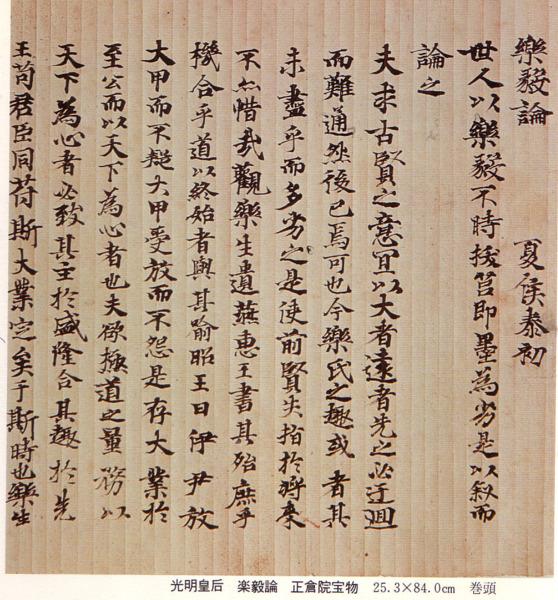 樂毅論　夏侯泰初
世人以樂毅不時拔莒即墨為劣是以叙而
論之
夫求古賢之意宜以大者遠者先之必迂迴
而難通然後已焉可也今樂氏之趣或者其
未盡乎而多劣之是使前賢失指於將來
不亦惜哉觀樂生遺燕惠王書其殆庶乎
機合乎道以終始者與其喻昭王曰伊尹放
大甲而不疑大甲受放而不怨是存大業於
至公而以天下為心者也夫欲極道之量務以
天下為心者必致其主於盛隆合其趣於先
王苟君臣同符斯大業定矣于斯時也樂生
光明皇后　楽毅論　正倉院宝物　25.3×84.0cm　巻頭